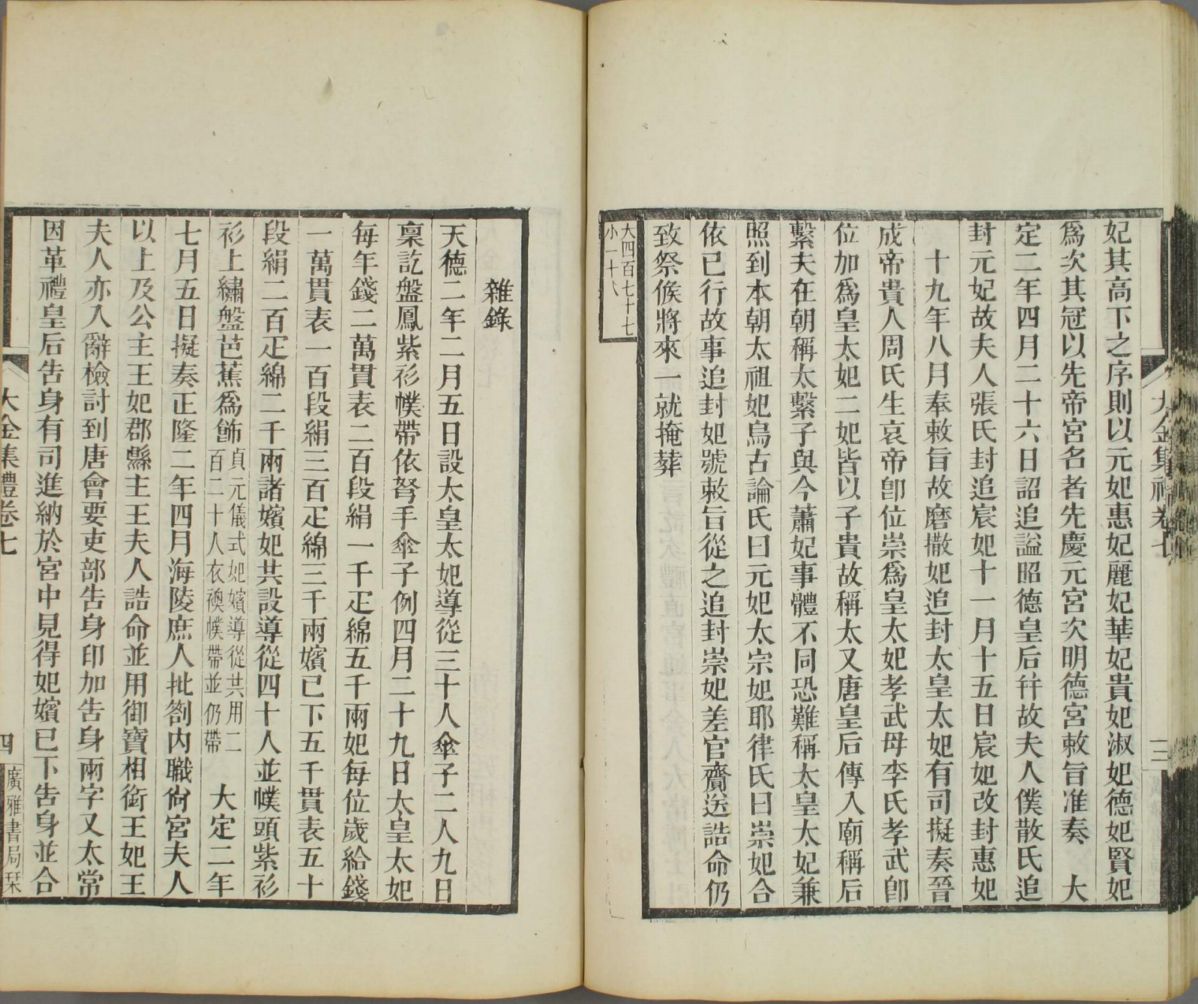 妃其高下之序則以元妃惠妃麗妃華妃貴妃淑妃德妃賢妃
爲次其冠以先帝宮名者先慶元宮次明德宮敕旨准奏　大
定二年四月二十六日詔追謚昭德皇后幷故夫人僕散氏追
封元妃故夫人張氏封追宸妃十一月十五日宸妃改封惠妃
十九年八月奉敕旨故磨撒妃追封太皇太妃有司擬奏晉
成帝貴人周氏生哀帝卽位崇爲皇太妃孝武母李氏孝武卽
位加爲皇太妃二妃皆以子貴故稱太又唐皇后傳入廟稱后
繫夫在朝稱太繫子與今蕭妃事體不同恐難稱太皇太妃兼
照到本朝太祖妃烏古論氏曰元妃太宗妃耶律氏曰崇妃合
依已行故事追封妃號敕旨從之追封崇妃差官齎送誥命仍
致祭候將來一就掩葬
大四百七十七
小一十六
大金集禮卷七
三
雜錄
天德二年二月五日設太皇太妃導從三十人傘子二人九日
稟訖盤鳳紫衫幞帶依弩手傘子例四月二十九日太皇太妃
每年錢二萬貫表二百段絹一千疋綿五千兩妃每位歲給錢
一萬貫表一百段絹三百疋綿三千兩嬪已下五千貫表五十
段絹二百疋綿二千兩諸嬪妃共設導從四十人並幞頭紫衫
衫上繡盤芭蕉爲飾貞元儀式妃嬪導從共用二百二十人衣襖幞帶並仍帶　大定二年
七月五日擬奏正隆二年四月海陵庶人批劄內職尙宮夫人
以上及公主王妃郡縣主王夫人誥命並用御寶相銜王妃王
夫人亦入辭檢討到唐會要吏部告身印加告身兩字又太常
因革禮皇后告身有司進納於宮中見得妃嬪已下告身並合
大金集禮卷七
四
廣雅書局栞